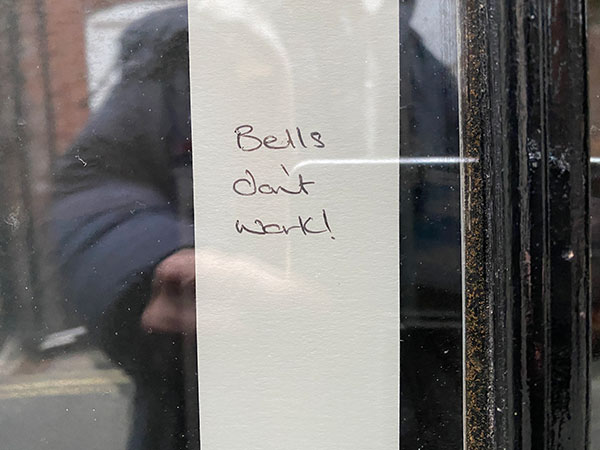 Bells
don't
work!